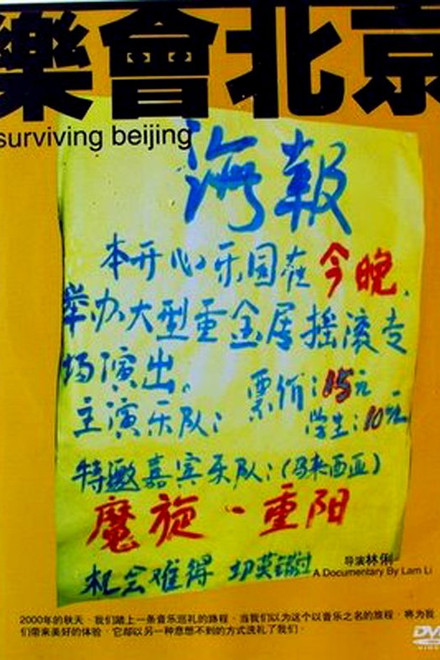 樂會北京
surviving beijing
海報
本开心乐园在今晚.
举办大型重金属摇滚专
场演出。
票价:15元
主演乐队:
学生:10元
特邀嘉宾乐队:(马来西亚)
魔旋·重阳
机会难得 切莫错过
导演林俐
A Documentary By Lam Li
2000年的秋天,我们踏上一条音乐巡礼的路程,当我们以为这个以音乐之名的旅程,将为我
们带来美好的体验,它却以另一种意想不到的方式洗礼了我们。
DVD
VIDEO